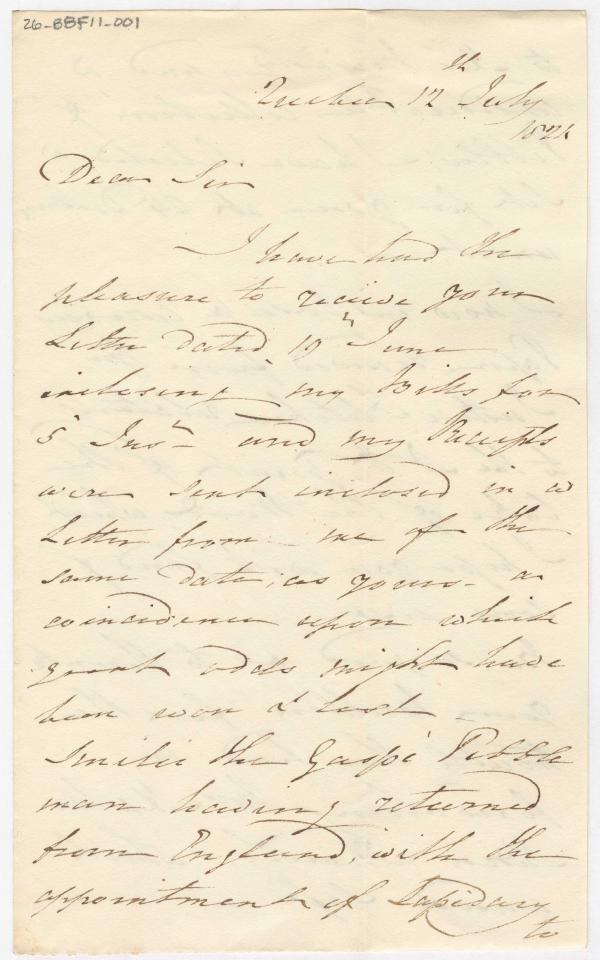 26-BBF11-001
Quebec 12th July
182
Dear Sir
I have had the
pleasure to receive your
Letter dated 19th June
inclosing my Bills for
5 and my Receipts
were sent inclosed in a
Letter from me of the
same date, as yours - a
coincidence upon which
great odds might have
been won & lost -
Smilie the Gaspé Pebble
man having returned
from England, with the
appointment of Lapidary
to